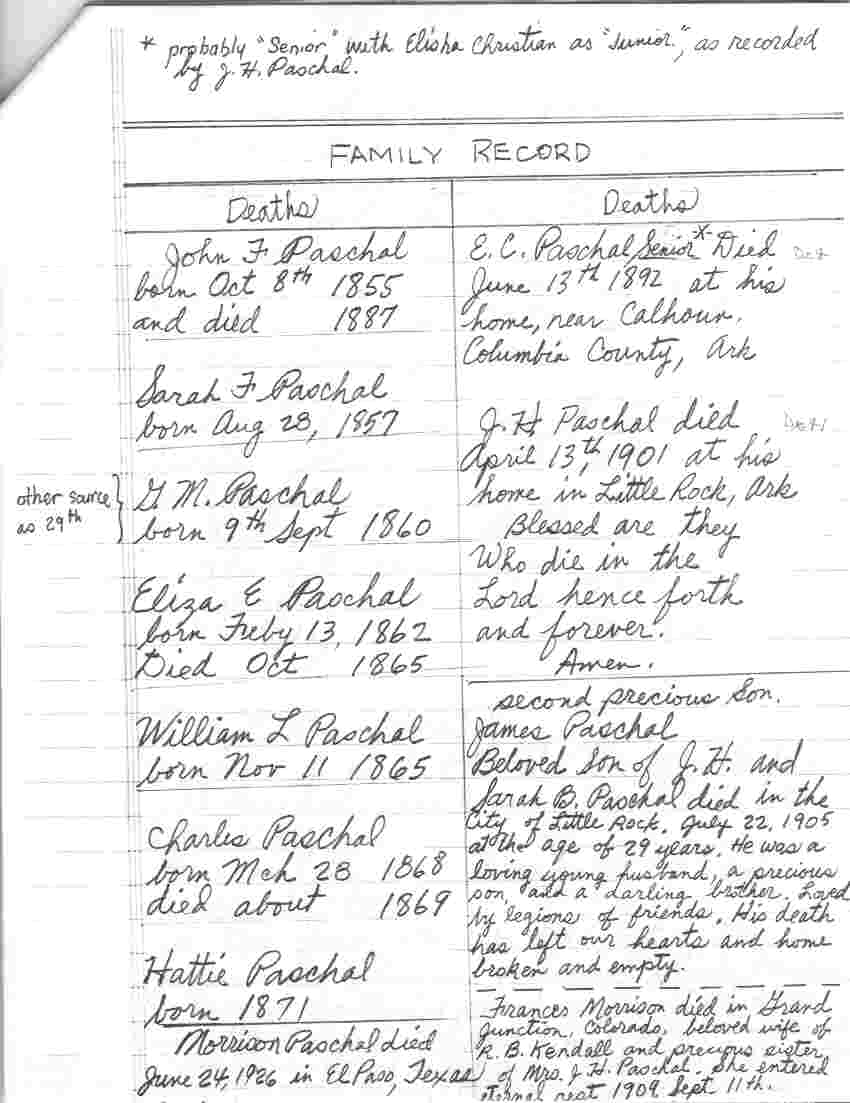 * probably "Senior," with Elisha Christian as "Junior.", as recorded
by J. H. Paschal.
FAMILY RECORD
Deaths
John F Paschal
born Oct 8th 1855
and died 1887
Sarah F Paschal
born Aug 28, 1857
other source
as 29th
G. M. Paschal
born 9th Sept 1860
Eliza E Paschal
born Freby 13, 1862
Died Oct 1865
William L Paschal
born Nov 11 1865
Charles Paschal
born Mch 28 1868
died about 1869
Hattie Paschal
born 1871
Morrison Paschal died
June 24, 1926 in El Paso, Texas
Deaths
E. C. Paschal Senior* Died
June 13th 1892 at his
home, near Calhoun.
Columbia County, Ark
J. H Paschal died
April 13th, 1901 at his
home in Little Rock, Ark
Blessed are they
Who die in the
Lord hence forth
and forever.
Amen.
second precious Son.
James Paschal
Beloved Son of J. H. and
Sarah B. Paschal died in the
City of Little Rock, July 22, 1905
at the age of 29 years. He was a
loving young husband, a precious
son, and a darling brother. Loved
by legions of friends. His death
has left our hearts and home
broken and empty.
Frances Morrison died in Grand
Junction, Colorado, beloved wife of
R. B. Kendall and precious sister
of Mrs. J. H. Paschal. She entered
eternal rest 1909 Sept 11th.